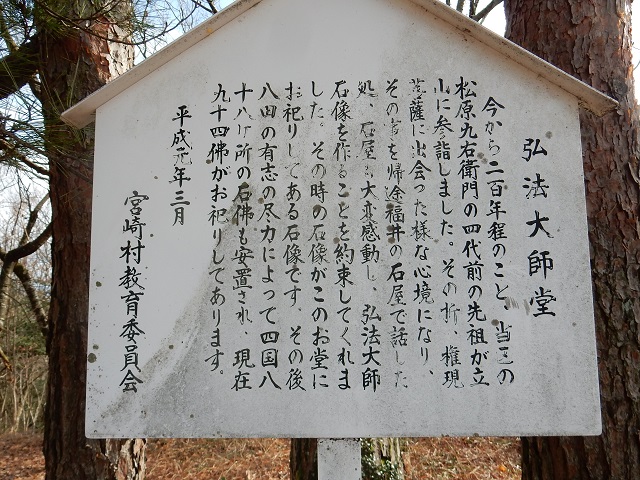 弘法大師堂
今から二百年程のこと、当区の
松原九右衛門の四代前の先祖が立
山に参詣しました。その折、権現
菩薩に出会った様な心境になり、
その旨を帰途福井の石屋で話した
処、石屋も大変感動し、弘法大師
石像を作ることを約束してくれま
した。その時の石像がこのお堂に
お祀りしてある石像です。その後
八田の有志の尽力によって四国八
十八ヶ所の石佛も安置され、現在
九十四佛がお祀りしてあります。
平成元年三月
宮崎村教育委員会